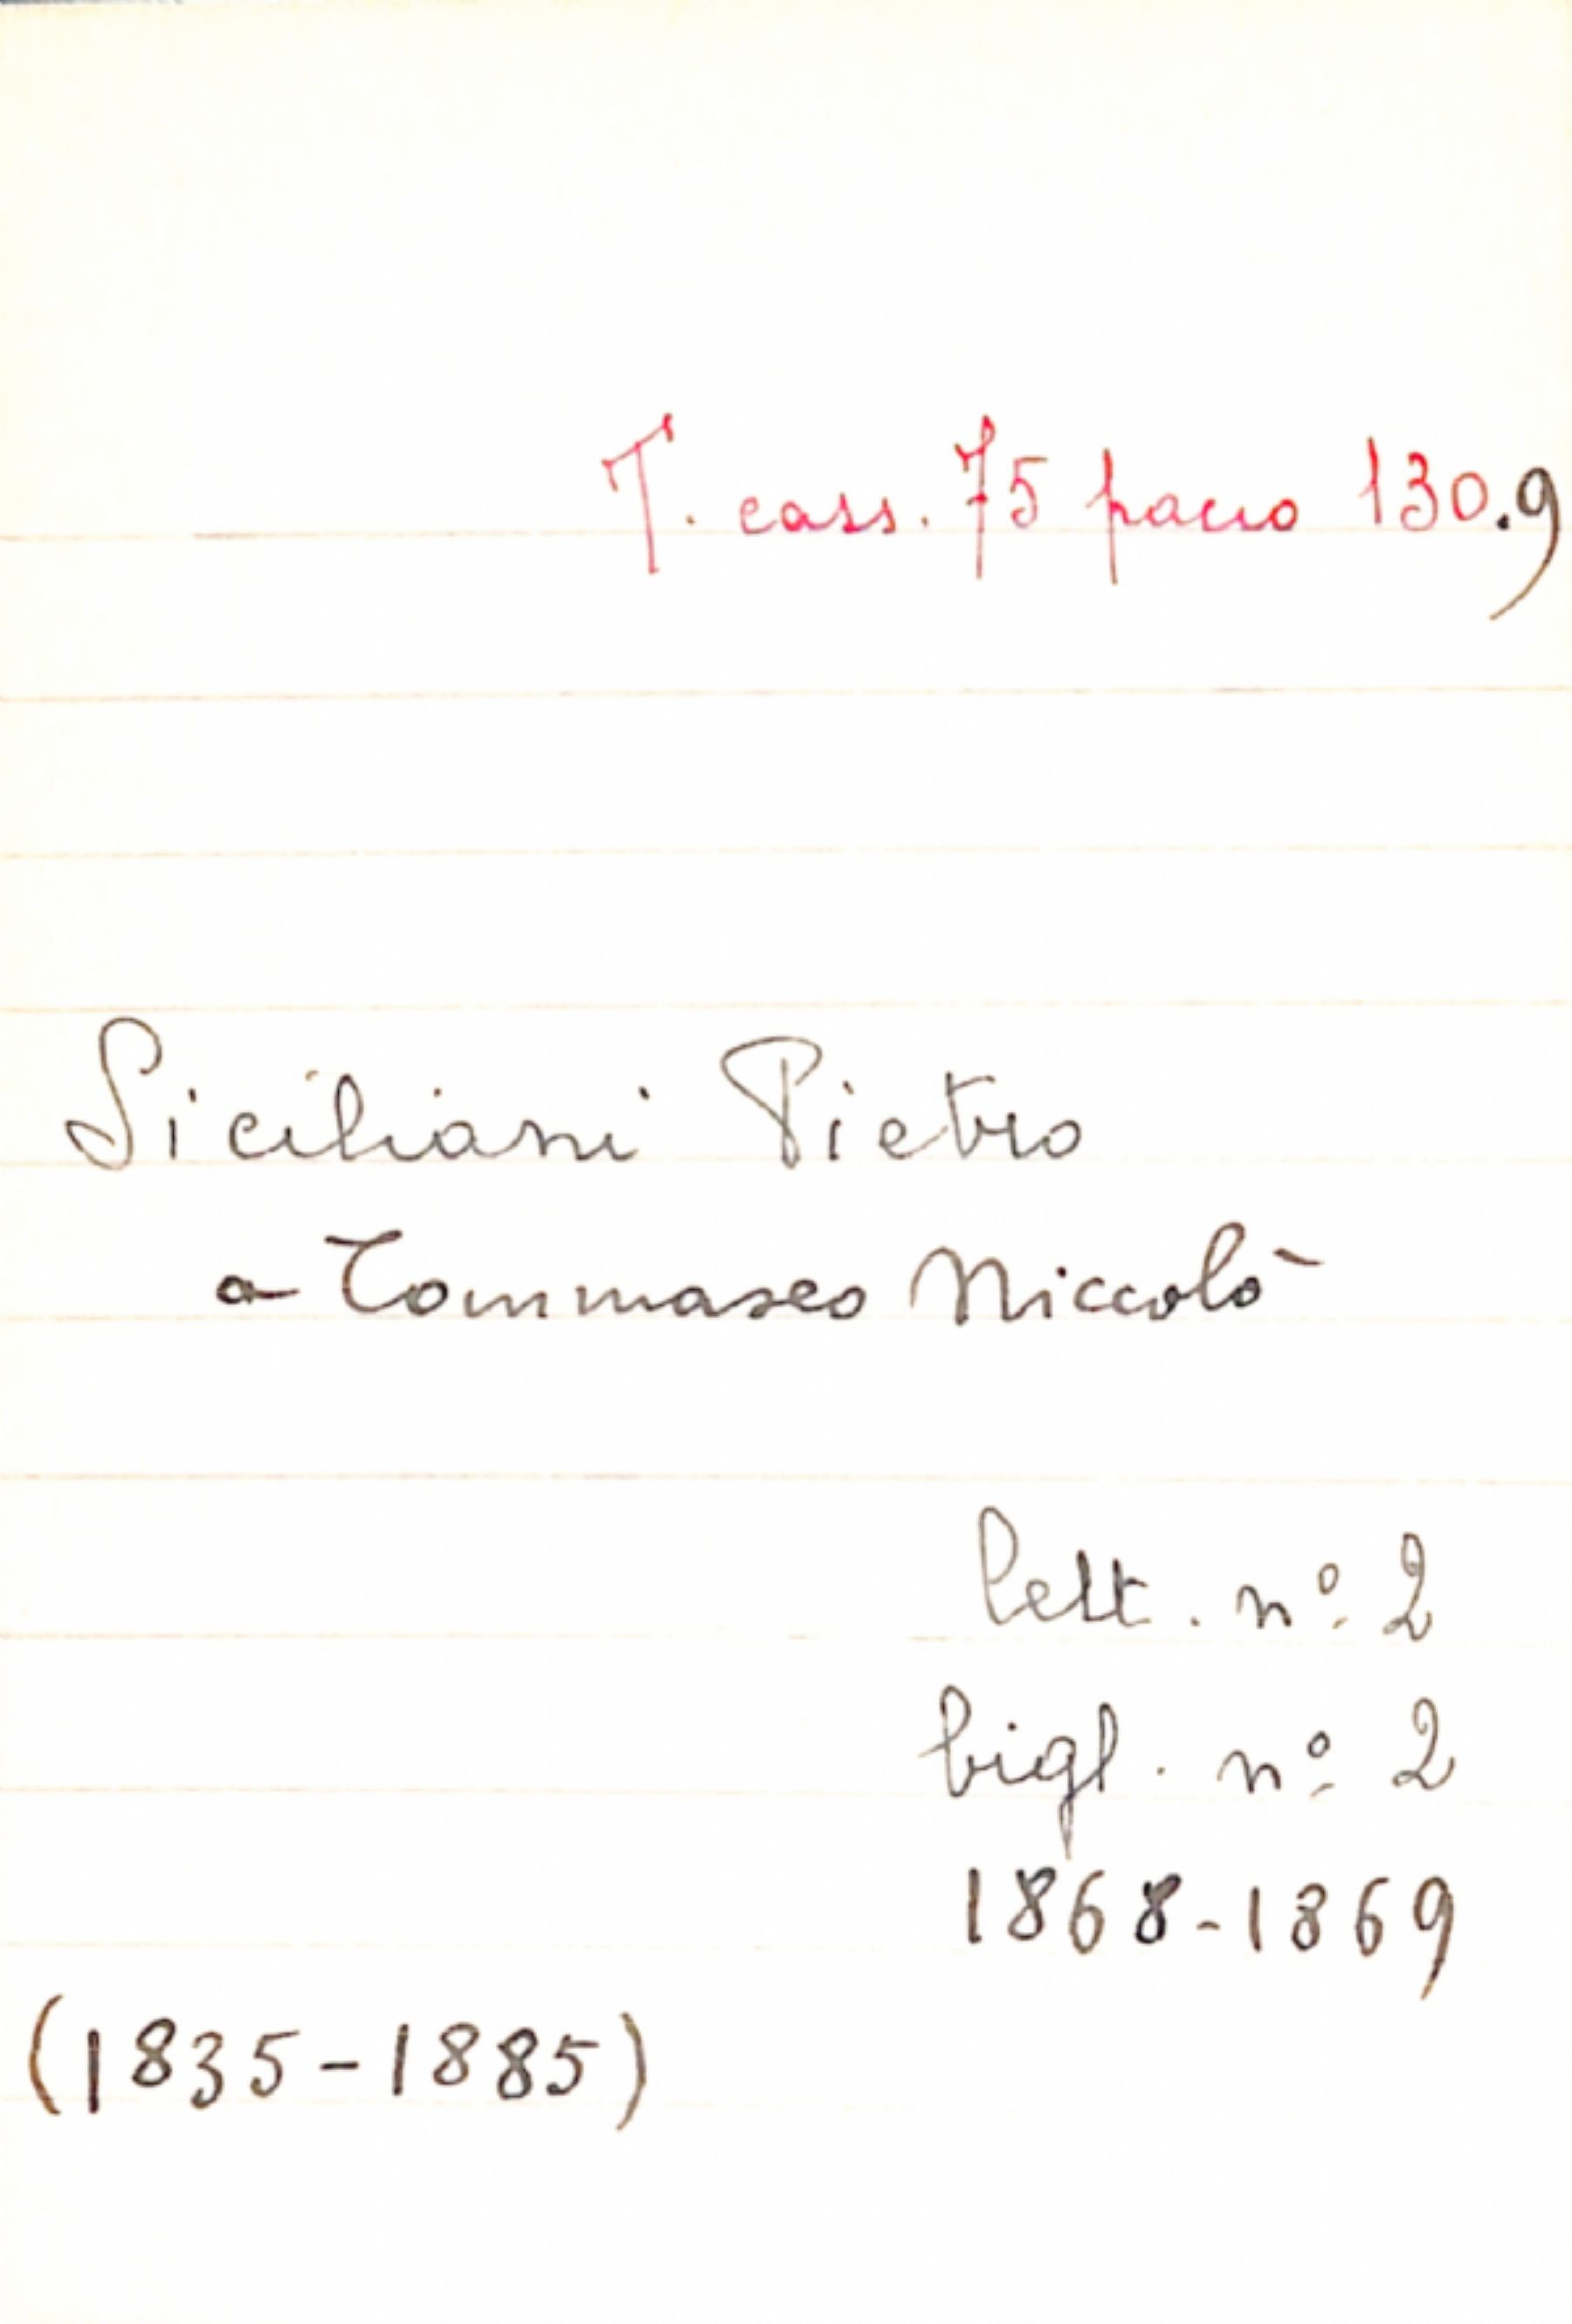 T. cass. 75 pacco 130.9
Siciliani Pietro
a Tommaseo Niccolò
lett. nº 2
bigl. nº 2
1868-1869
(1835-1885)